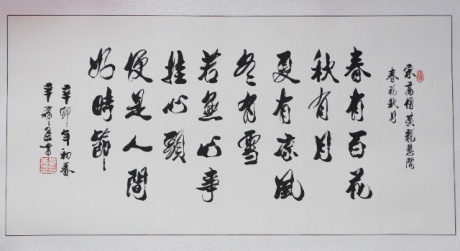 宋高僧黄龍慧開
春秋月
春有百花
秋有月
夏有凉風
冬有雪
若無心事
挂心頭
便是人間
好時節
辛卯年初春